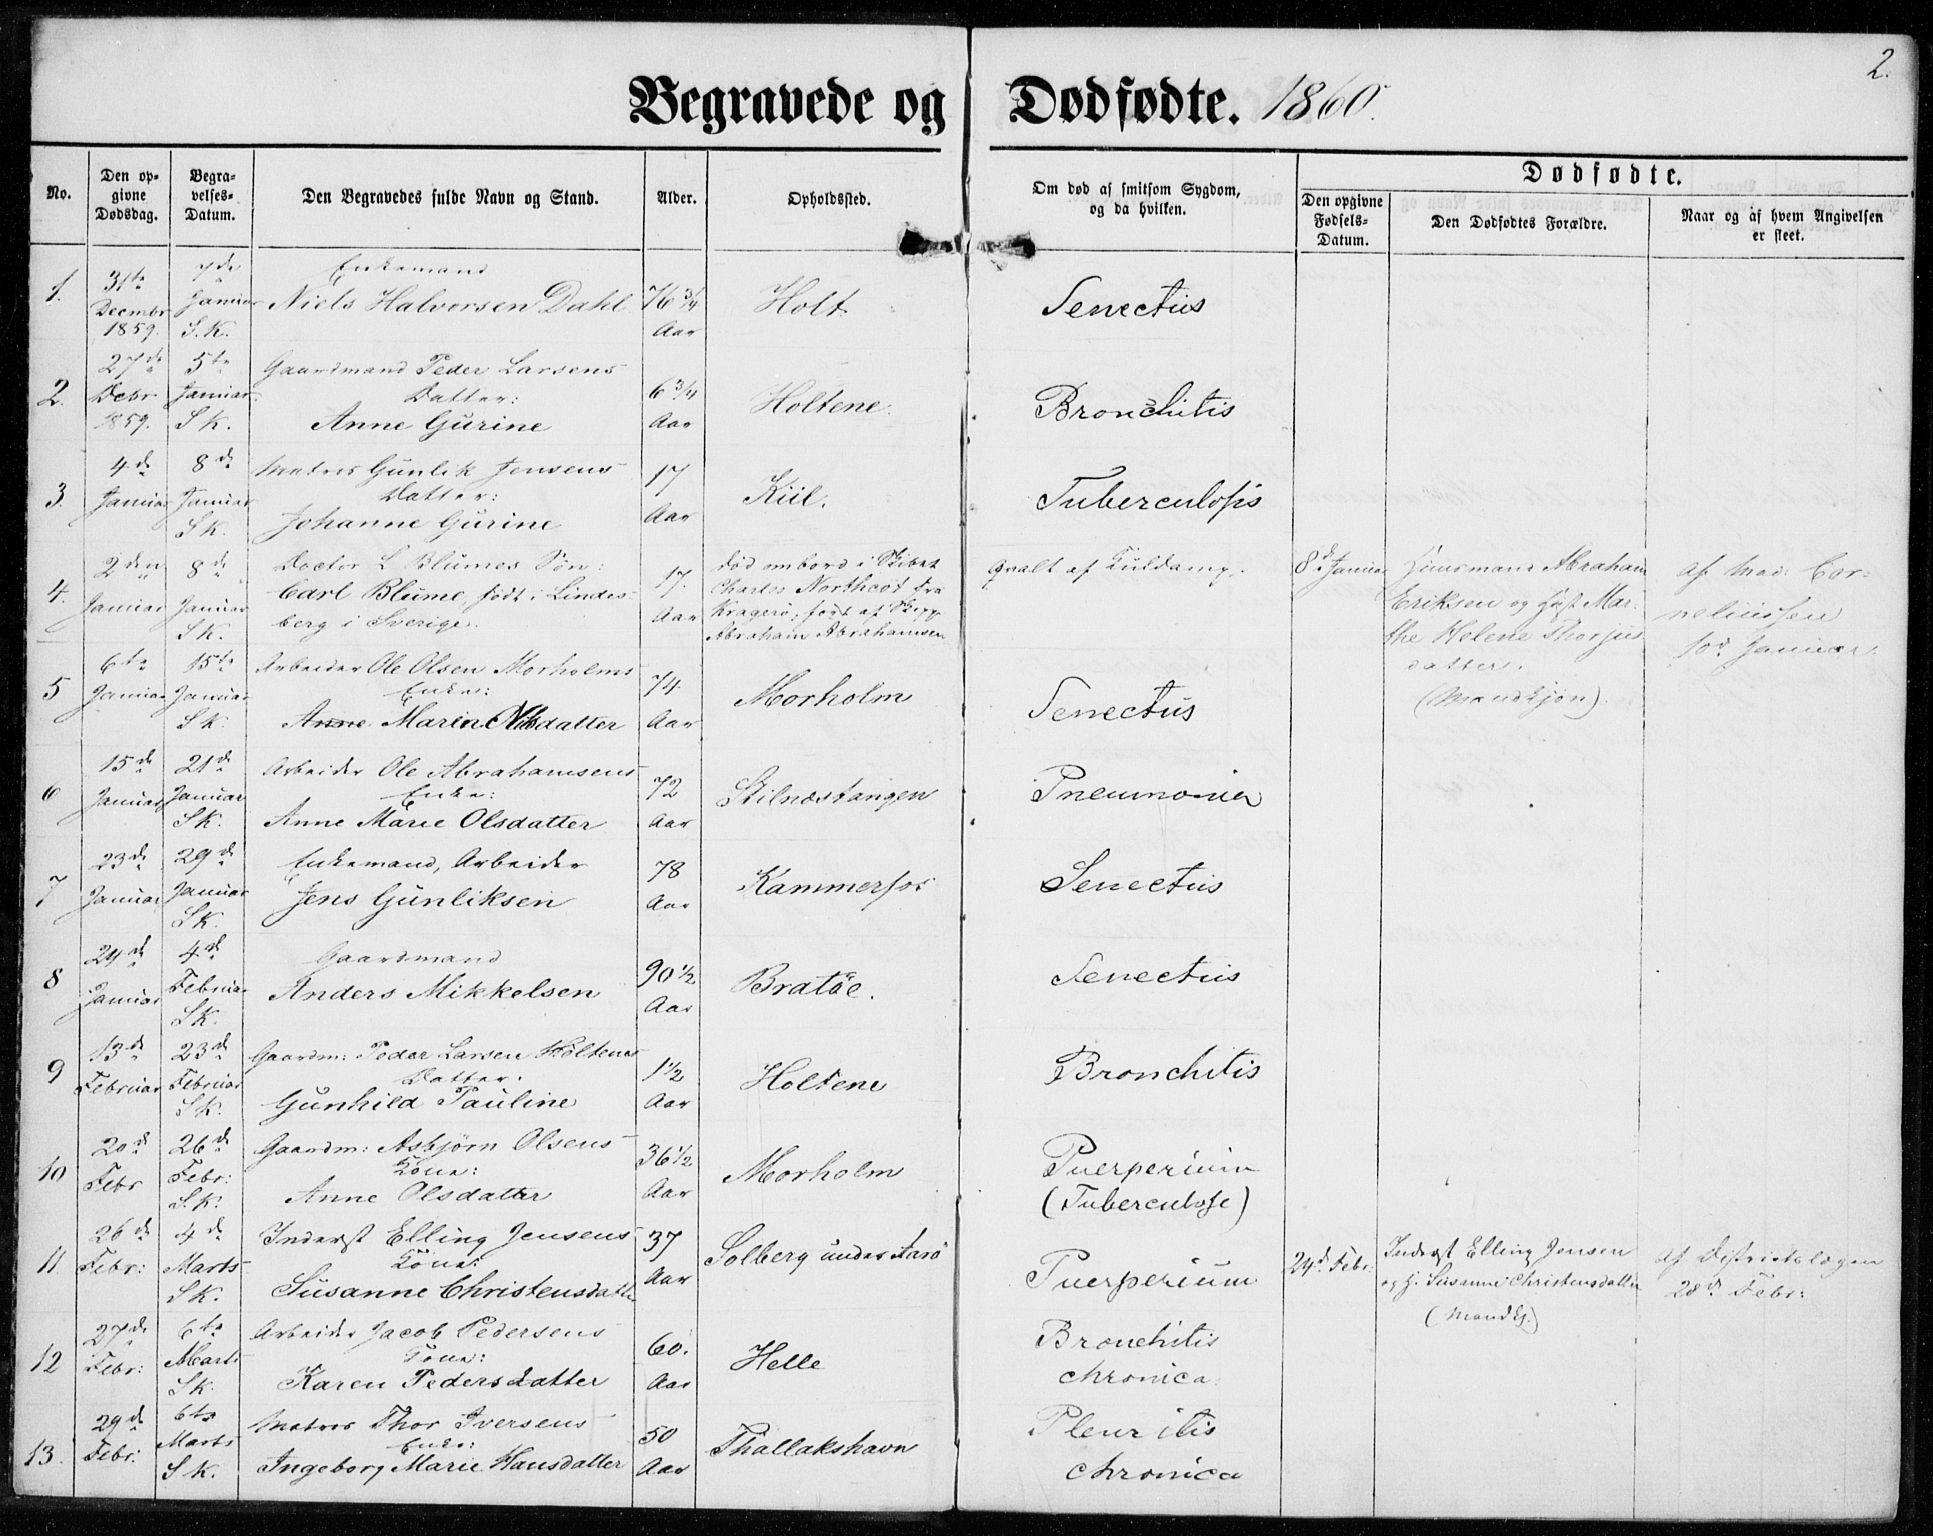 2.
Begravede og Dødfødte. 1860.
No.
Den op-
givne
Dødsdag.
Begra-
velses-
Datum.
Den Begravedes fulde Navn og Stand.
Alder.
Opholdssted.
Om død af smitsom Sygdom,
og da hvilken.
Dødfødte.
Den opgivne
Fødsels-
Datum.
Den Dødfødtes Forældre.
Naar og af hvem Angivelsen
er skeet.
1.
31te
Decembr
1859.
7de
Januar
S.K.
Enkemand
Niels Halvorsen Dahl
76 3/4
Aar
Holt
Senectus
2.
27de
Decbr
1859.
5te
Januar
S K.
Gaardmand Peder Larsens
Datter:
Anne Gurine
6 3/4
Aar
Holtene
Bronchitis
3.
4de
Januar
8de
Januar
S K.
Matros Gunlik Jensens
Datter:
Johanne Gurine
17
Aar
Kiil.
Tuberculosis
4.
2den
Januar
8de
Januar
S K.
Doctor L Blumes Søn:
Carl Blume født i Lindes-
berg i Sverige.
17.
Aar
død ombord i Skibet
Charles Northcot fra
Kragerø, ført af Skipp
Abraham Abrahamsen
Qvalt af Kuldamp.
8de Januar
Huusmand Abraham
Eriksen og Hust Mar-
the Helene Thorjus
datter.
(Mandkjøn)
af Mad: Cor-
neliussen
10d Januar.
5
6te
Januar
15te
Januar
S K.
Arbeider Ole Olsen Morholms
Enke:
Anne Maren Nilsdatter
74
Aar
Morholm
Senectus
6
15de
Januar
21de
Januar
S K.
Arbeider Ole Abrahamsens
Enke:
Anne Marie Olsdatter
72
Aar
Stilnæstangen
Pneumonia
7
23de
Januar
29de
Januar
S K.
Enkemand, Arbeider
Jens Gunliksen
78
Aar
Kammerfos
Senectus
8
24de
Januar
4de
Februar
S K.
Gaardmand
Anders Mikkelsen
90 1/2
Aar
Bratøe.
Senectus
9
13de
Februar
23de
Februar
S K.
Gaardm: Peder Larsen Holtenes
Datter:
Gunhild Pauline
1 1/2
Aar
Holtene
Bronchitis
10
20de
Febr
26de
Febr:
S.K.
Gaardm: Asbjørn Olsens
Kone:
Anne Olsdatter
36 1/2
Aar
Morholm
Puerperium
(Tuberculose)
11.
26de
Febr:
4de
Marts
S K.
Inderst Elling Jensens
Kone:
Susanne Christensdatte
37
Aar
Solberg under Aarø
Puerperium
24d Febr:
Inderst Elling Jensen
og H. Susanne Christensdatter
(Mandkj.)
af Districtslægen
28d Febr:
12
27de
Febr:
6te
Marts
S K.
Arbeider Jacob Pedersens
Kone:
Karen Pedersdatter
60.
Aar
Helle
Bronchitis
chronica.
13.
29de
Febr.
6te
Marts
S K.
Matros Thor Iversens
Enke:
Ingeborg Marie Hansdatter
50
Aar
Thallakshavn
Pleuritis
chronica